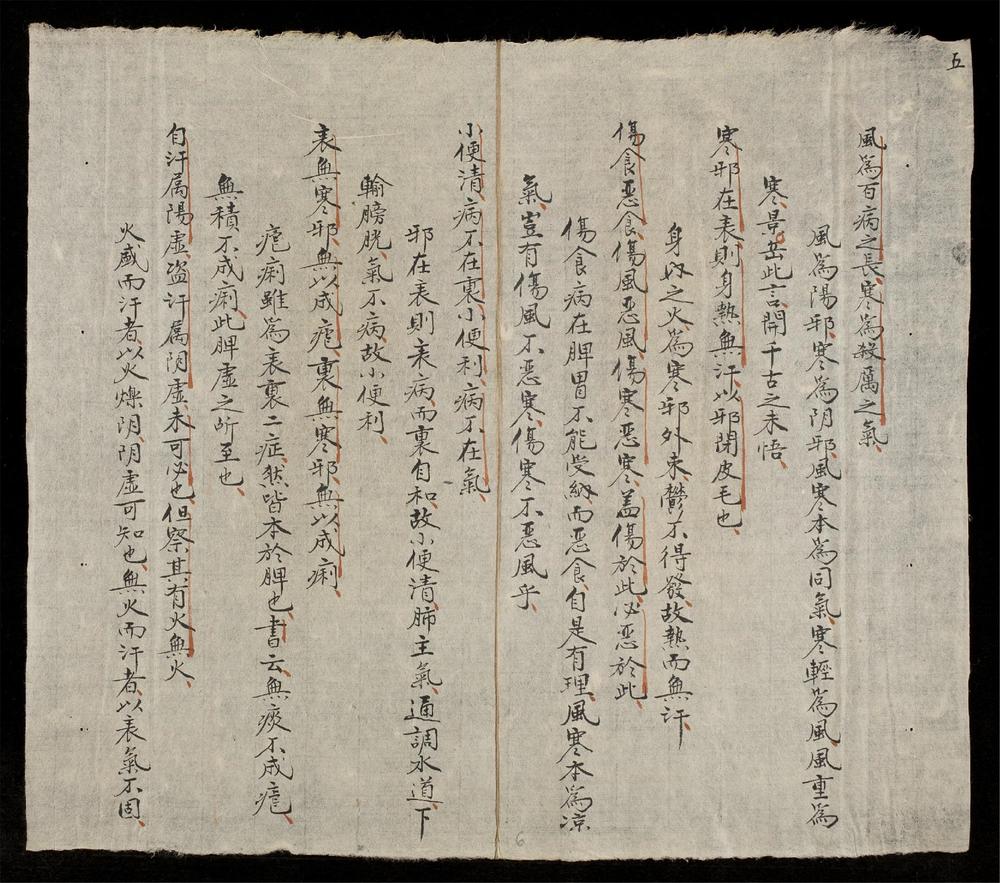 五
風為百病之長、寒為殺厲之氣、
風為陽邪、寒為阴邪、風寒本為同氣、寒輕為風、風重為
寒、景岳此言、開千古之未悟、
寒邪在表則身熱無汗、以邪閉皮毛也、
身中之火為寒邪外束、鬱不得發、故熱而無汗
傷食惡食、傷風惡風、傷寒惡寒、盖傷於此、必惡於此、
傷食病在脾胃不能受納而惡食、自是有理、風寒本為凉
氣、豈有傷風不惡寒、傷寒不惡風乎、
小便清、病不在裏、小便利、病不在氣、
邪在表則表病而裏自和、故小便清、肺主氣、通調水道、下
輸膀胱、氣不病故小便利、
表無寒邪、無以成瘧、裏無寒邪、無以成痢、
瘧痢雖為表裏二症、然皆本於脾也、書云、無痰不成瘧、
無積不成痢、此脾虛之所至也、
自汗属陽虛、盗汗属阴虛、未可必也、但察其有火無火、
火盛而汗者、以火爍阴、阴虛可知也、無火而汗者、以表氣不固、
6